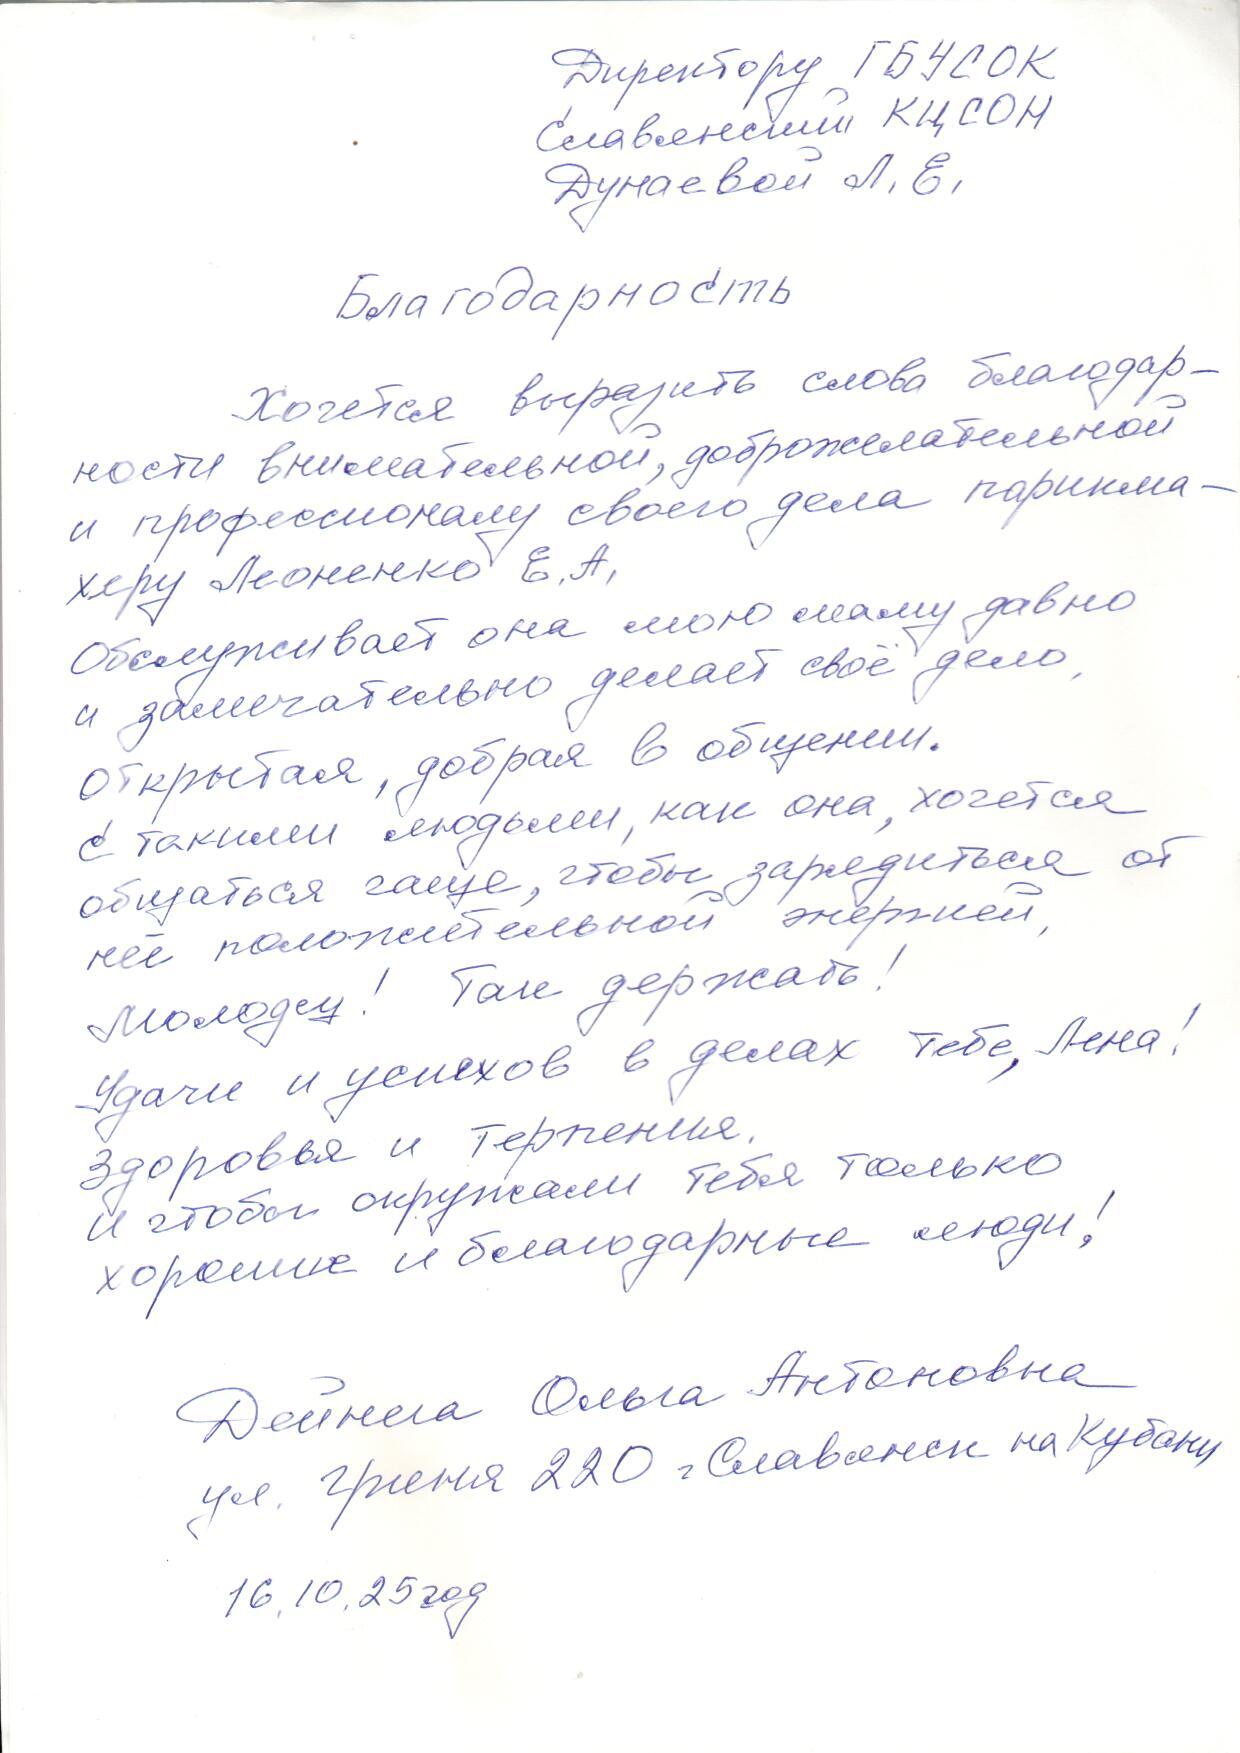 Директору ГБУСОК
Славянский КЦСОН
Дунаевой Л.Е.
Благодарность
Хочется выразить слова благодар-
ности внимательной, доброжелательной
и профессионалу своего дела парикма-
херу Леоненко Е.А.
Обслуживает она мою маму давно
и замечательно делает своё дело,
открытая, добрая в общении.
С такими людьми, как она, хочется
общаться чаще, чтобы зарядиться от
неё положительной энержией,
Молодец! Так держать!
Удачи и успехов в делах тебе, Лена!
Здоровья и терпения.
И чтобы окружали тебя только
хорошие и благодарные люди!
Дейнега Ольга Антоновна
ул. Гриня 220 г Славянск на Кубани
16.10.25 год